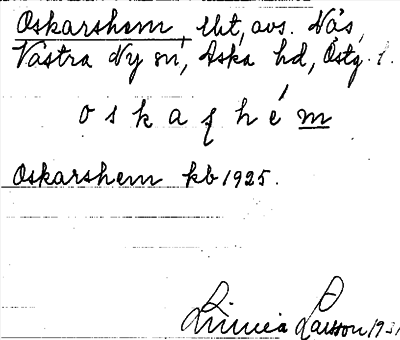 Oskarshem, lht, avs. Nås,
Västra Ny sn, Aska hd, Östg. l.
o s k a ʂ h é m
Oskarshem kb 1925.
Linnéa Larsson 1931